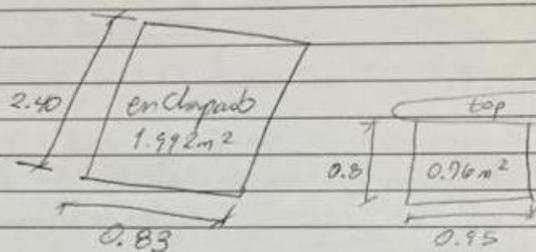 2.40
enchapado
1.992m²
0.83
top
0.8
0.76m²
0.95